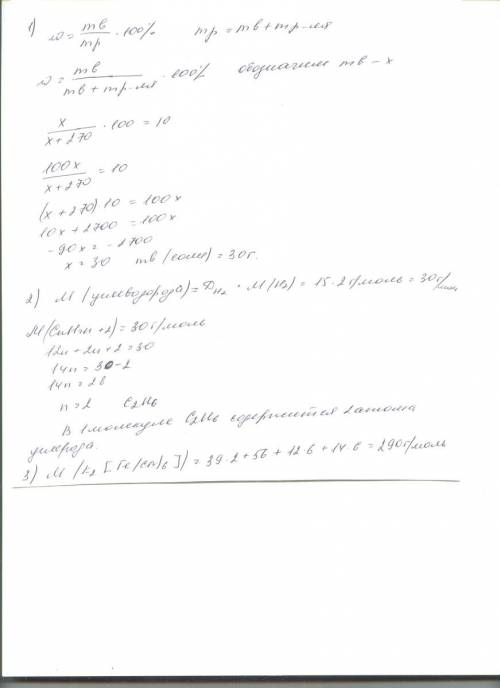 1) ω = mв/mр · 100%    mр = mв + mр-ля
ω = mв/(mв + mр-ля) · 100%    обозначим mв - x
x/(x+270) · 100 = 10
100x/(x+270) = 10
(x+270)·10 = 100x
10x + 2700 = 100x
-90x = -2700
x = 30    mв (соли) = 30г.
2) M (углеводорода) = DH2 · M(H2) = 15·2г/моль = 30г/моль
M(CnH2n+2) = 30г/моль
12n + 2n + 2 = 30
14n = 30-2
14n = 28
n = 2    C2H6
В 1 молекуле C2H6 содержится 2 атома
углерода.
3) M (K2[Fe(CN)6]) = 39·2 + 56 + 12·6 + 14·6 = 290г/моль